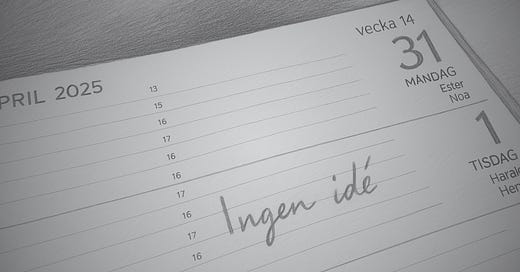 vecka 14
PRIL 2025
31
MÅNDAG
Ester
Noa
13
15
16
17
16
16
17
16
17
16
1
TISDAG
Ingen idé